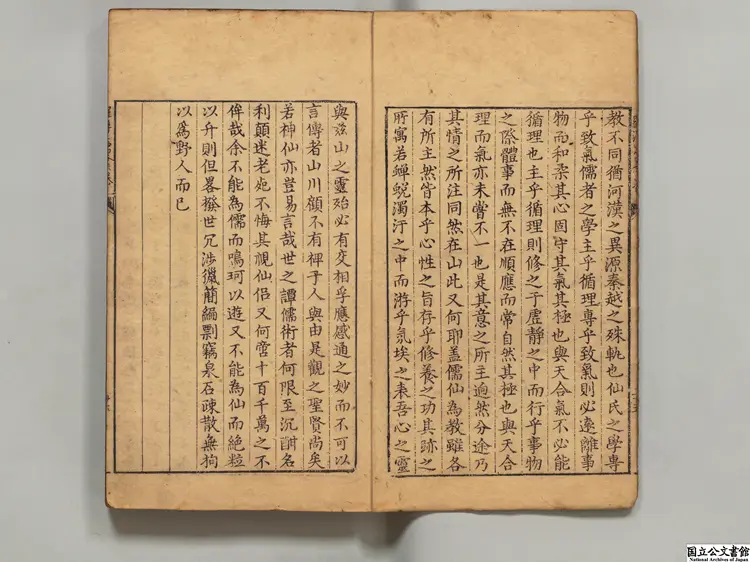 教不同猶河漢之異源秦越之殊軌也仙氏之學專
乎致氣儒者之學主乎循理專乎致氣則必遠離事
物而和柔其心固守其氣其極也與天合氣不必能
循理也主乎循理則修之于虛靜之中而行乎事物
之際體事而無不在順應而常自然其極也與天合
理而氣亦未嘗不一也是其意之所主逈然分途乃
其情之所注同然在山此又何耶盖儒仙為教雖各
有所主然皆本乎心性之旨存乎修養之功其跡之
所寓若蟬蛻濁汙之中而游乎氛埃之表吾心之靈
與茲山之靈殆必有交相孚應感通之妙而不可以
言傳者山川顧不有裨于人與由是觀之聖賢尚矣
若神仙亦豈易言哉世之譚儒術者何限至沉酣名
利顛迷老死不悔其視仙侶又何啻十百千萬之不
侔哉余不能為儒而鳴珂以遊又不能為仙而絶粒
以升則但畧撥世冗涉獵簡編剽竊泉石疎散無拘
以為野人而已
国立公文書館
National Archives of Japan